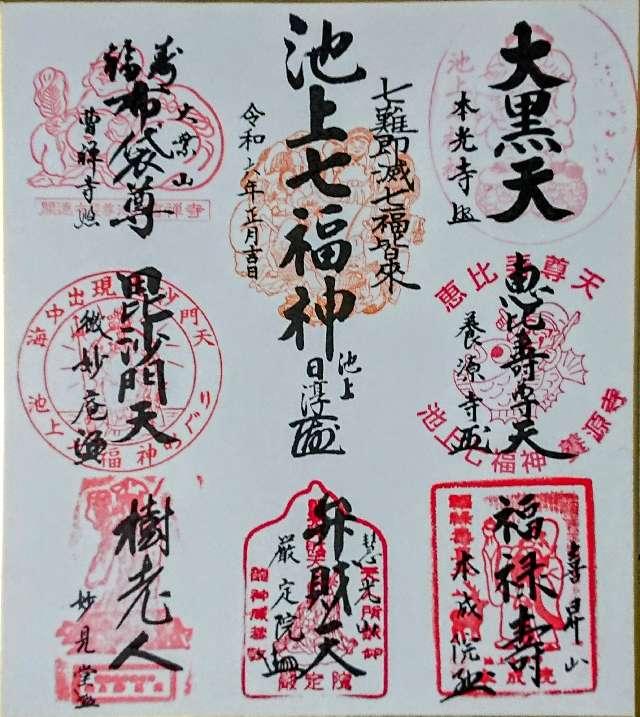 大黒天
本光寺
池上七福神
七難即滅七福皆來
令和六年正月吉日
池上
日淳
寿
福
布袋尊
大業山
曹禅寺
恵比寿尊天
恵比寿尊天
養源寺
池上七福神 養源寺
毘沙門天
微妙庵
海中出現毘沙門天
池上七福神めぐり
福禄寿
喜昇山
本成院
弁財天
慧光山
厳定院
厳定院
樹老人
妙見堂